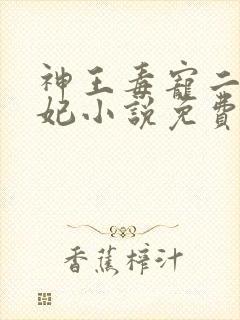 神王毒寵二
妃小說免費
香蕉榨汁